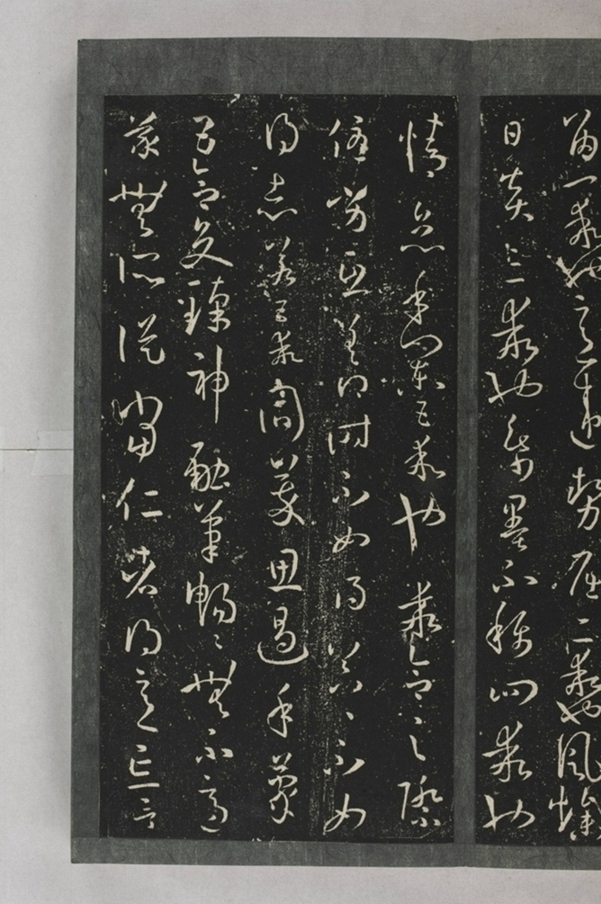 留一乖也意違勢屈二乖也風燥
日炎三乖也紙墨不稱四乖也
情怠手闌五乖也乖合之際
優劣互差得時不如得器〻不如
得志若五乖同萃思遏手蒙
五合交臻神融筆暢〻無不適
蒙無所從當仁者得意忘言